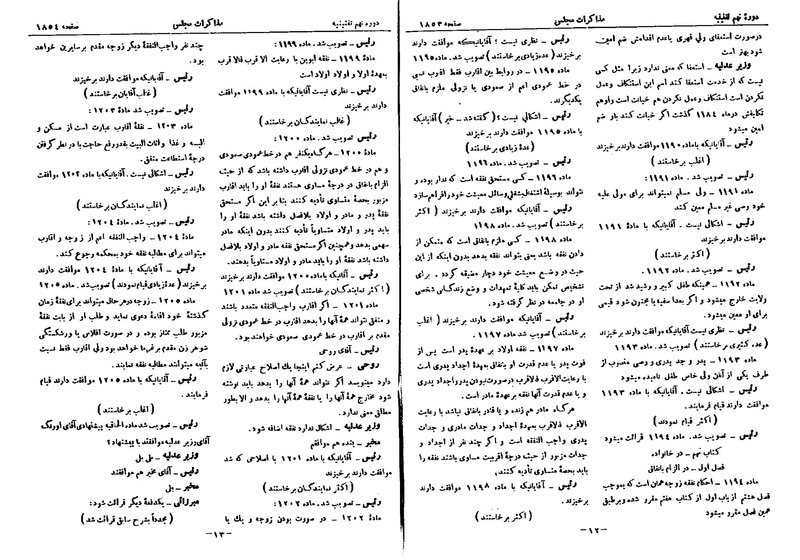 دورهٔ نهم تقنینیه
مذاکرات مجلس
صفحه ۱۸۵۳
درصورت استعفای ولی قهری یا عدم اقدامش ضم امین
شود بهتر است
وزیر عدلیه ـ استعفا که معنی ندارد زیرا مثل کسی
نیست که از خدمت استعفا کنند اسم این استنکاف وعمل
نکردن است استنکاف وعمل نکردن هم خیانت است واوهم
تکلیفش درماده ۱۱۸۴ گذشت اگر خیانت کند باز ضم
امین میشود
رئیس ـ آقایانیکه باماده۱۱۹۰موافقت دارندبرخیزند
( اغلب برخاستند )
رئیس ـ تصویب شد. ماده۱۱۹۱:
مادهٔ ۱۱۹۱ ـ ولی مسلم نمیتواند برای مولی علیه
خود وصی غیر مسلم معین کند
رئیس ـ اشکالی نیست. آقایانیکه با مادهٔ ۱۱۹۱
موافقت دارند برخیزند
( اکثر برخاستند )
رئیس ـ تصویب شد. ماده ۱۱۹۲:
ماده ۱۱۹۲ ـ همینکه طفل کبیر و رشید شد از تحت
ولایت خارج میشود و اگر بعدا سفیه یا مجنون شود قیمی
برای او معین میشود
رئیس ـ نظری نیست آقایانیکه موافقت دارند برخیزند
(عده کثیری برخاستند) تصویب شد. ماده ۱۱۹۳
مادهٔ ۱۱۹۳ ـ پدر و جد پدری و وصی منصوب از
طرف یکی از آنان ولی خاص طفل نامیده میشود
رئیس ـ اشکالی نیست. آقایانیکه با ماده ۱۱۹۳
موافقت دارند قیام فرمایند.
( اکثر قیام نمودند )
رئیس ـ تصویب شد. ماده ۱۱۹۴ قرائت میشود
کتاب نهم ـ در خانواده
فصل اول ـ در الزام بانفاق
مادهٔ ۱۱۹۴ ـ احکام نفقه زوجه همان است که بموجب
فصل هشتم از باب اول از کتاب هفتم مقرر شده وبرطبق
همین فصل مقرر میشود
رئیس ـ نظری نیست ؟ آقایانیکه موافقت دارند
برخیزند (عده زیادی برخاستند) تصویب شد. ماده۱۱۹۵
ماده ۱۱۹۵ ـ در روابط بین اقارب فقط اقرب نسبی
در خط عمودی اعم از صعودی یا نزولی ملزم بانفاق
یکدیگرند.
رئیس ـ اشکالی نیست ؟ ( گفته شد ـ خیر ) آقایانیکه
با ماده ۱۱۹۵ موافقت دارند برخیزند
( عدهٔ زیادی برخاستند )
رئیس ـ تصویب شد. ماده ۱۱۹۶
مادهٔ۱۱۹۶ ـ کسی مستحق نفقه است که ندار بوده و
نتواند بوسیلهٔ اشتغال بشغلی وسائل معیشت خودرا فراهم سازد
رئیس ـ آقایانیکه موافقت دارند برخیزند ( اکثر
برخاستند ) تصویب شد.
ماده ۱۱۹۸ ـ کسی ملزم بانفاق است که متمکن از
دادن نفقه باشد یعنی بتواند نفقه بدهد بدون اینکه از این
حیث در وضع معیشت خود دچار مضیقه گردد . برای
تشخیص تمکن باید کلیهٔ تعهدات و وضع زندگانی شخصی
او در جامعه در نظر گرفته شود.
رئیس ـ آقایانیکه موافقت دارند برخیزند ( اغلب
برخاستند ) تصویب شد. ماده ۱۱۹۷
ماده ۱۱۹۷ ـ نفقه اولاد بر عهدهٔ پدر است پس از
فوت پدر یا عدم قدرت او بانفاق بعهدهٔ اجداد پدری است
با رعایت الاقرب فالاقرب درصورت نبودن پدرواجداد پدری
و یا عدم قدرت آنها نفقه برعهدهٔ مادر است.
هرگاه مادر هم زنده و یا قادر بانفاق نباشد با رعایت
الاقرب فالاقرب بعهدهٔ اجداد و جدات مادری و جدات
پدری واجب النفقه است و اگر چند نفر از اجداد و
جدات مزبور از حیث درجهٔ اقربیت مساوی باشند نفقه را
باید بحصهٔ متساوی تأدیه کنند.
رئیس ـ آقایانیکه با ماده ۱۱۹۸ موافقت دارند
برخیزند.
( اکثر برخاستند )
ـ ۱۲ ـ
دوره نهم تقنینیه
مذاکرات مجلس
صفحه ۱۸۵۴
رئیس ـ تصویب شد. ماده ۱۱۹۹:
مادهٔ ۱۱۹۹ ـ نفقه ابوین با رعایت الاقرب فالاقرب
بعهدهٔ اولاد و اولاد اولاد است
رئیس ـ نظری نیست آقایانیکه با ماده ۱۱۹۹ موافقت
دارند برخیزند
( غالب نمایندگان برخاستند )
رئیس ـ تصویب شد. ماده ۱۲۰۰:
مادهٔ ۱۲۰۰ ـ هرگاه یکنفر هم درخط عمودی صعودی
و هم در خط عمودی نزولی اقارب داشته باشد که از حیث
الزام بانفاق در درجهٔ مساوی هستند نفقهٔ او را باید اقارب
مزبور بحصهٔ متساوی تأدیه کنند بنابر این اگر مستحق
نفقه پدر و مادر و اولاد بلافصل داشته باشد نفقهٔ او را
باید پدر و اولاد متساویاً تأدیه کنند بدون اینکه مادر
سهمی بدهد وهمچنین اگر مستحق نفقه مادر و اولاد بلافصل
داشته باشد نفقهٔ او را باید مادر و اولاد متساویاً بدهند.
رئیس ـ آقایانیکه باماده ۱۲۰۰ موافقت دارند برخیزند
( اکثر نمایندگان برخاستند ) تصویب شد ماده ۱۲۰۱
ماده ۱۲۰۱ ـ اگر اقارب واجب‌النفقه متعدد باشند
و منفق نتواند نفقهٔ همهٔ آنها را بدهد اقارب در خط عمودی نزولی
مقدم بر اقارب در خط عمودی صعودی خواهند بود.
رئیس ـ آقای روحی
روحی ـ عرض کنم اینجا یک اصلاح عبارتی لازم
دارد مینویسد اگر نتواند همهٔ آنها را بدهد باید نوشته
شود مخارج همهٔ آنها را یا نفقهٔ همهٔ آنها را بدهد و الا بطور
مطلق معنی ندارد.
وزیر عدلیه ـ اشکال ندارد نفقه اضافه شود.
مخبر ـ بنده هم موافقم
رئیس ـ آقایانیکه با ماده ۱۲۰۱ با اصلاحی که شد
موافقت دارند برخیزند
( اکثر نمایندگان برخاستند )
رئیس ـ تصویب شد. ماده ۱۲۰۲:
مادهٔ ۱۲۰۲ ـ در صورت بودن زوجه و یك یا
چند نفر واجب‌النفقهٔ دیگر زوجه مقدم برسایرین خواهد
بود.
رئیس ـ آقایانیکه موافقت دارند برخیزند
( غالب آقایان برخاستند )
رئیس ـ تصویب شد. مادهٔ ۱۲۰۳:
مادهٔ ۱۲۰۳ ـ نفقهٔ اقارب عبارت است از مسکن و
البسه و غذا و اثاث البیت بقدر رفع حاجت با در نظر گرفتن
درجهٔ استطاعت منفق.
رئیس ـ اشکالی نیست. آقایانیکه با ماده ۱۲۰۳ موافقت
دارند برخیزند
( اغلب نمایندگان برخاستند )
رئیس ـ تصویب شد. مادهٔ ۱۲۰۴:
مادهٔ ۱۲۰۴ ـ واجب النفقه اعم از زوجه و اقارب
میتواند برای مطالبه نفقه خود بمحکمه رجوع کند.
رئیس ـ آقایانیکه با مادهٔ ۱۲۰۴ موافقت دارند
برخیزند (عده زیادی قیام نمودند) تصویب شد. ماده ۱۲۰۵
ماده ۱۲۰۵ ـ زوجه درهرحال میتواند برای نفقهٔ زمان
گذشتهٔ خود اقامهٔ دعوی نماید و طلب او از بابت نفقهٔ
مزبور طلب ممتاز بوده و در صورت افلاس یا ورشکستگی
شوهر زن مقدم برغرما خواهد بود ولی اقارب فقط نسبت
بآتیه میتوانند مطالبه نفقه نمایند.
رئیس ـ آقایانیکه با ماده ۱۲۰۵ موافقت دارند قیام
فرمایند.
( اغلب برخاستند )
رئیس ـ تصویب شد. ماده الحاقیه پیشنهادی آقای اورنگ
آقای وزیر عدلیه موافقند با پیشنهاد؟
وزیر عدلیه ـ بلی
رئیس ـ آقای مخبر هم موافقند
مخبر ـ بلی
میرزائی ـ یکدفعهٔ دیگر قرائت شود:
( مجدداً بشرح سابق قرائت شد )
ـ ۱۳ ـ